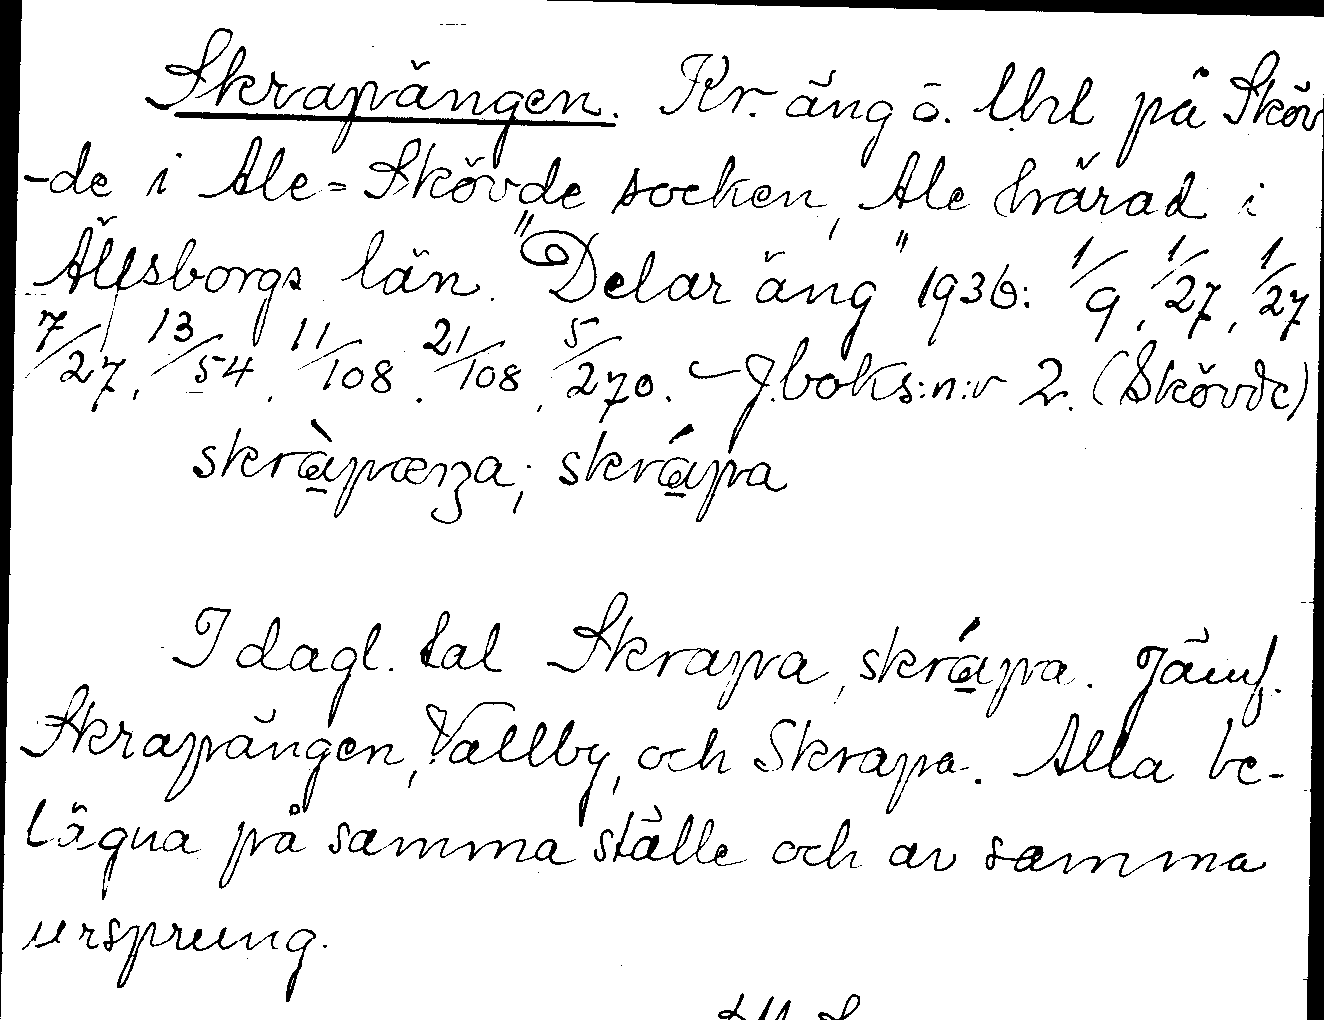 Skrapängen. Kr. äng ö. Utl på Sköv
-de i Ale=Skövde socken, Ale härad i
Älfsborgs län. "Delar äng" 1936: 1/9, 1/27, 1/27
7/27, 13/54, 11/108, 21/108, 5/270. – J.boks:n:r 2. (Skövde)
skràpæŋa; skrápa
I dagl. tal Skrapa, skrápa. Jämf.
Skrapängen, Vallby, och Skrapa. Alla be-
lägna på samma ställe och av samma
ursprung.